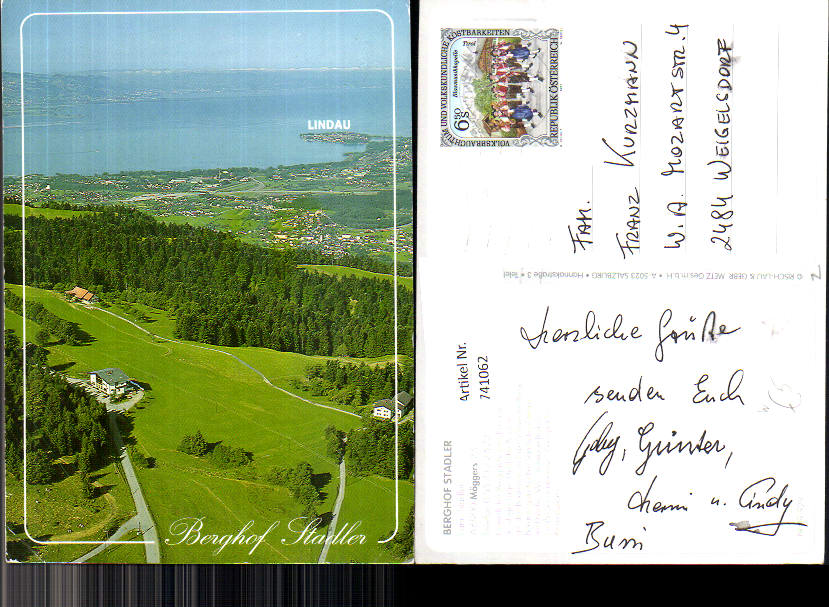 LINDAU
Berghof Stadler
VOLKSBRAUCHTUM UND VOLKSKUNDLICHE KOSTBARKEITEN
Tirol
6.50 S
REPUBLIK ÖSTERREICH
FAM.
FRANZ KURZMANN
W. A. MOZARTSTR. 4
2484 WEIGELSDORF
© RISCH-LAU & GEBR. METZ Ges.m.b.H. • A 5023 SALZBURG • Hannakstraße 3 • Telef
Herzliche Grüße
senden Euch
Günter,
u. Cindy
Bussi
Artikel Nr.
741062
BERGHOF STADLER
Möggers